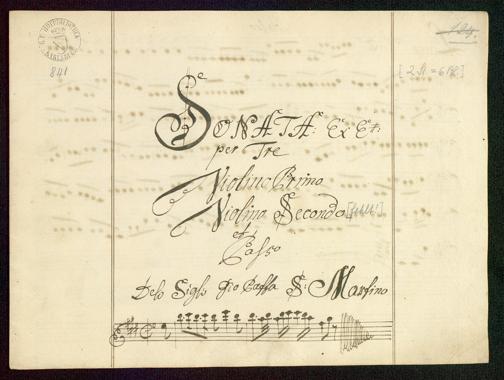 841
194.
[2 St. = 6 Bl.]
SONATA: Ex E#:
per Tre
Violino Primo
Violino Secondo [fehlt!]
et
Basso
Delo Sigle Gio Batta S: Martino